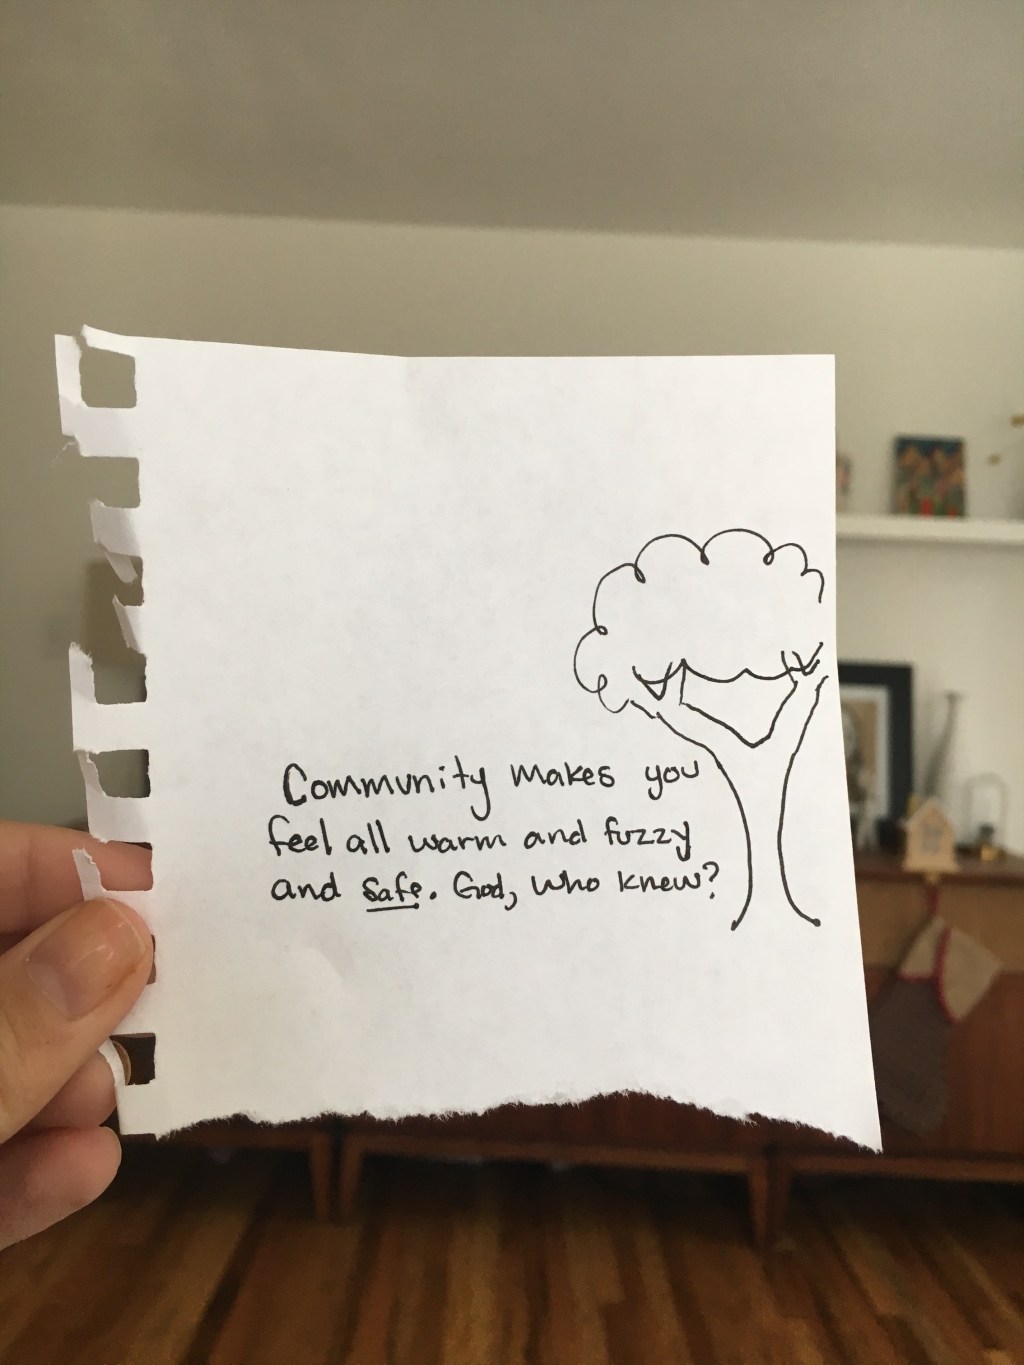 Community makes you
feel all warm and fuzzy
and safe. God, who knew?